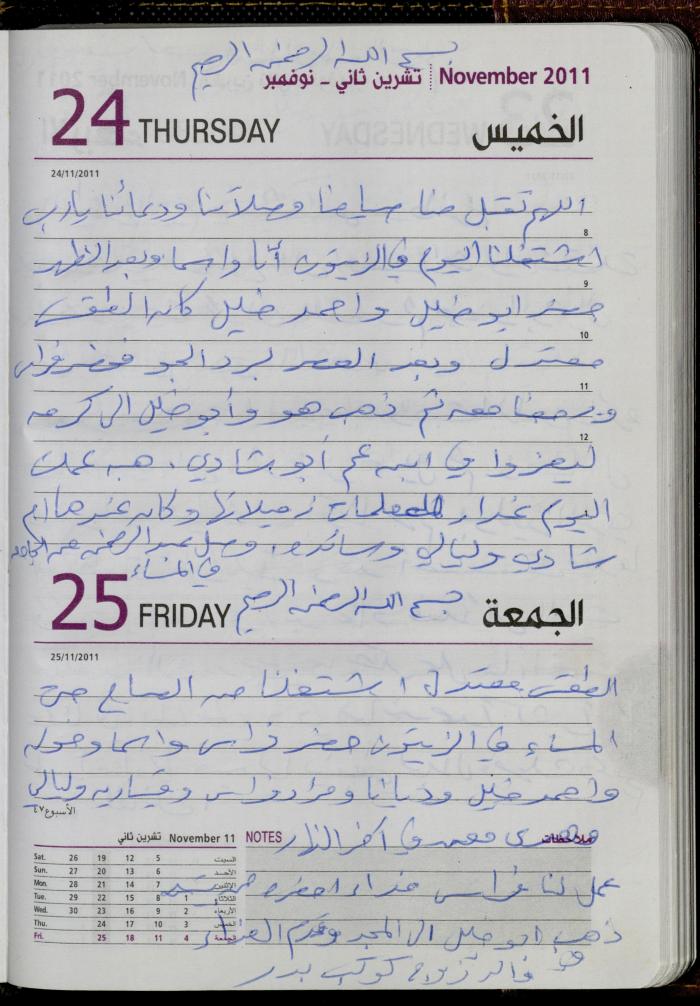 بسم الله الرحمن الرحيم
تشرين ثاني - نوفمبر November 2011
24 THURSDAY الخميس
24/11/2011
اللهم تقبل منا صيامنا وصلاتنا ودعائنا يارب
8
اشتغلنا اليوم في الزيتون أنا واسما وبعد الظهر
9
حضر ابو خليل واحمد خليل كان الطقس
10
معتدل وبعد العصر برد الجو فحضر فراس
11
ورجعنا معه ثم ذهب هو وأبو خليل الى
12
ليعزوا في ابن عم أبو شادي. عملت
اليوم غداء للمعلمات زميلاتها وكان عندها ام
شادي وليالي وساندي. وصل عبد الرحمن من الجامعة
في المساء
25 FRIDAY بسم الله الرحمن الرحيم الجمعة
25/11/2011
الطقس معتدل اشتغلنا من الصباح حتى
المساء في الزيتون حضر فراس واسما
واحمد خليل وديانا ومراد فراس وليالي
الأسبوع ٤٧
في اخر النهار
NOTES ملاحظات
تشرين ثاني November 11
Sat. 26 19 12 5 السبت
Sun. 27 20 13 6 الأحد
Mon. 28 21 14 7 الإثنين
Tue. 29 22 15 8 1 الثلاثاء
Wed. 30 23 16 9 2 الأربعاء
Thu. 24 17 10 3 الخميس
Fri. 25 18 11 4 الجمعة
عمل لنا فراس غداء احضره
ذهب ابو خليل الى المسجد
هو كوكب بدر